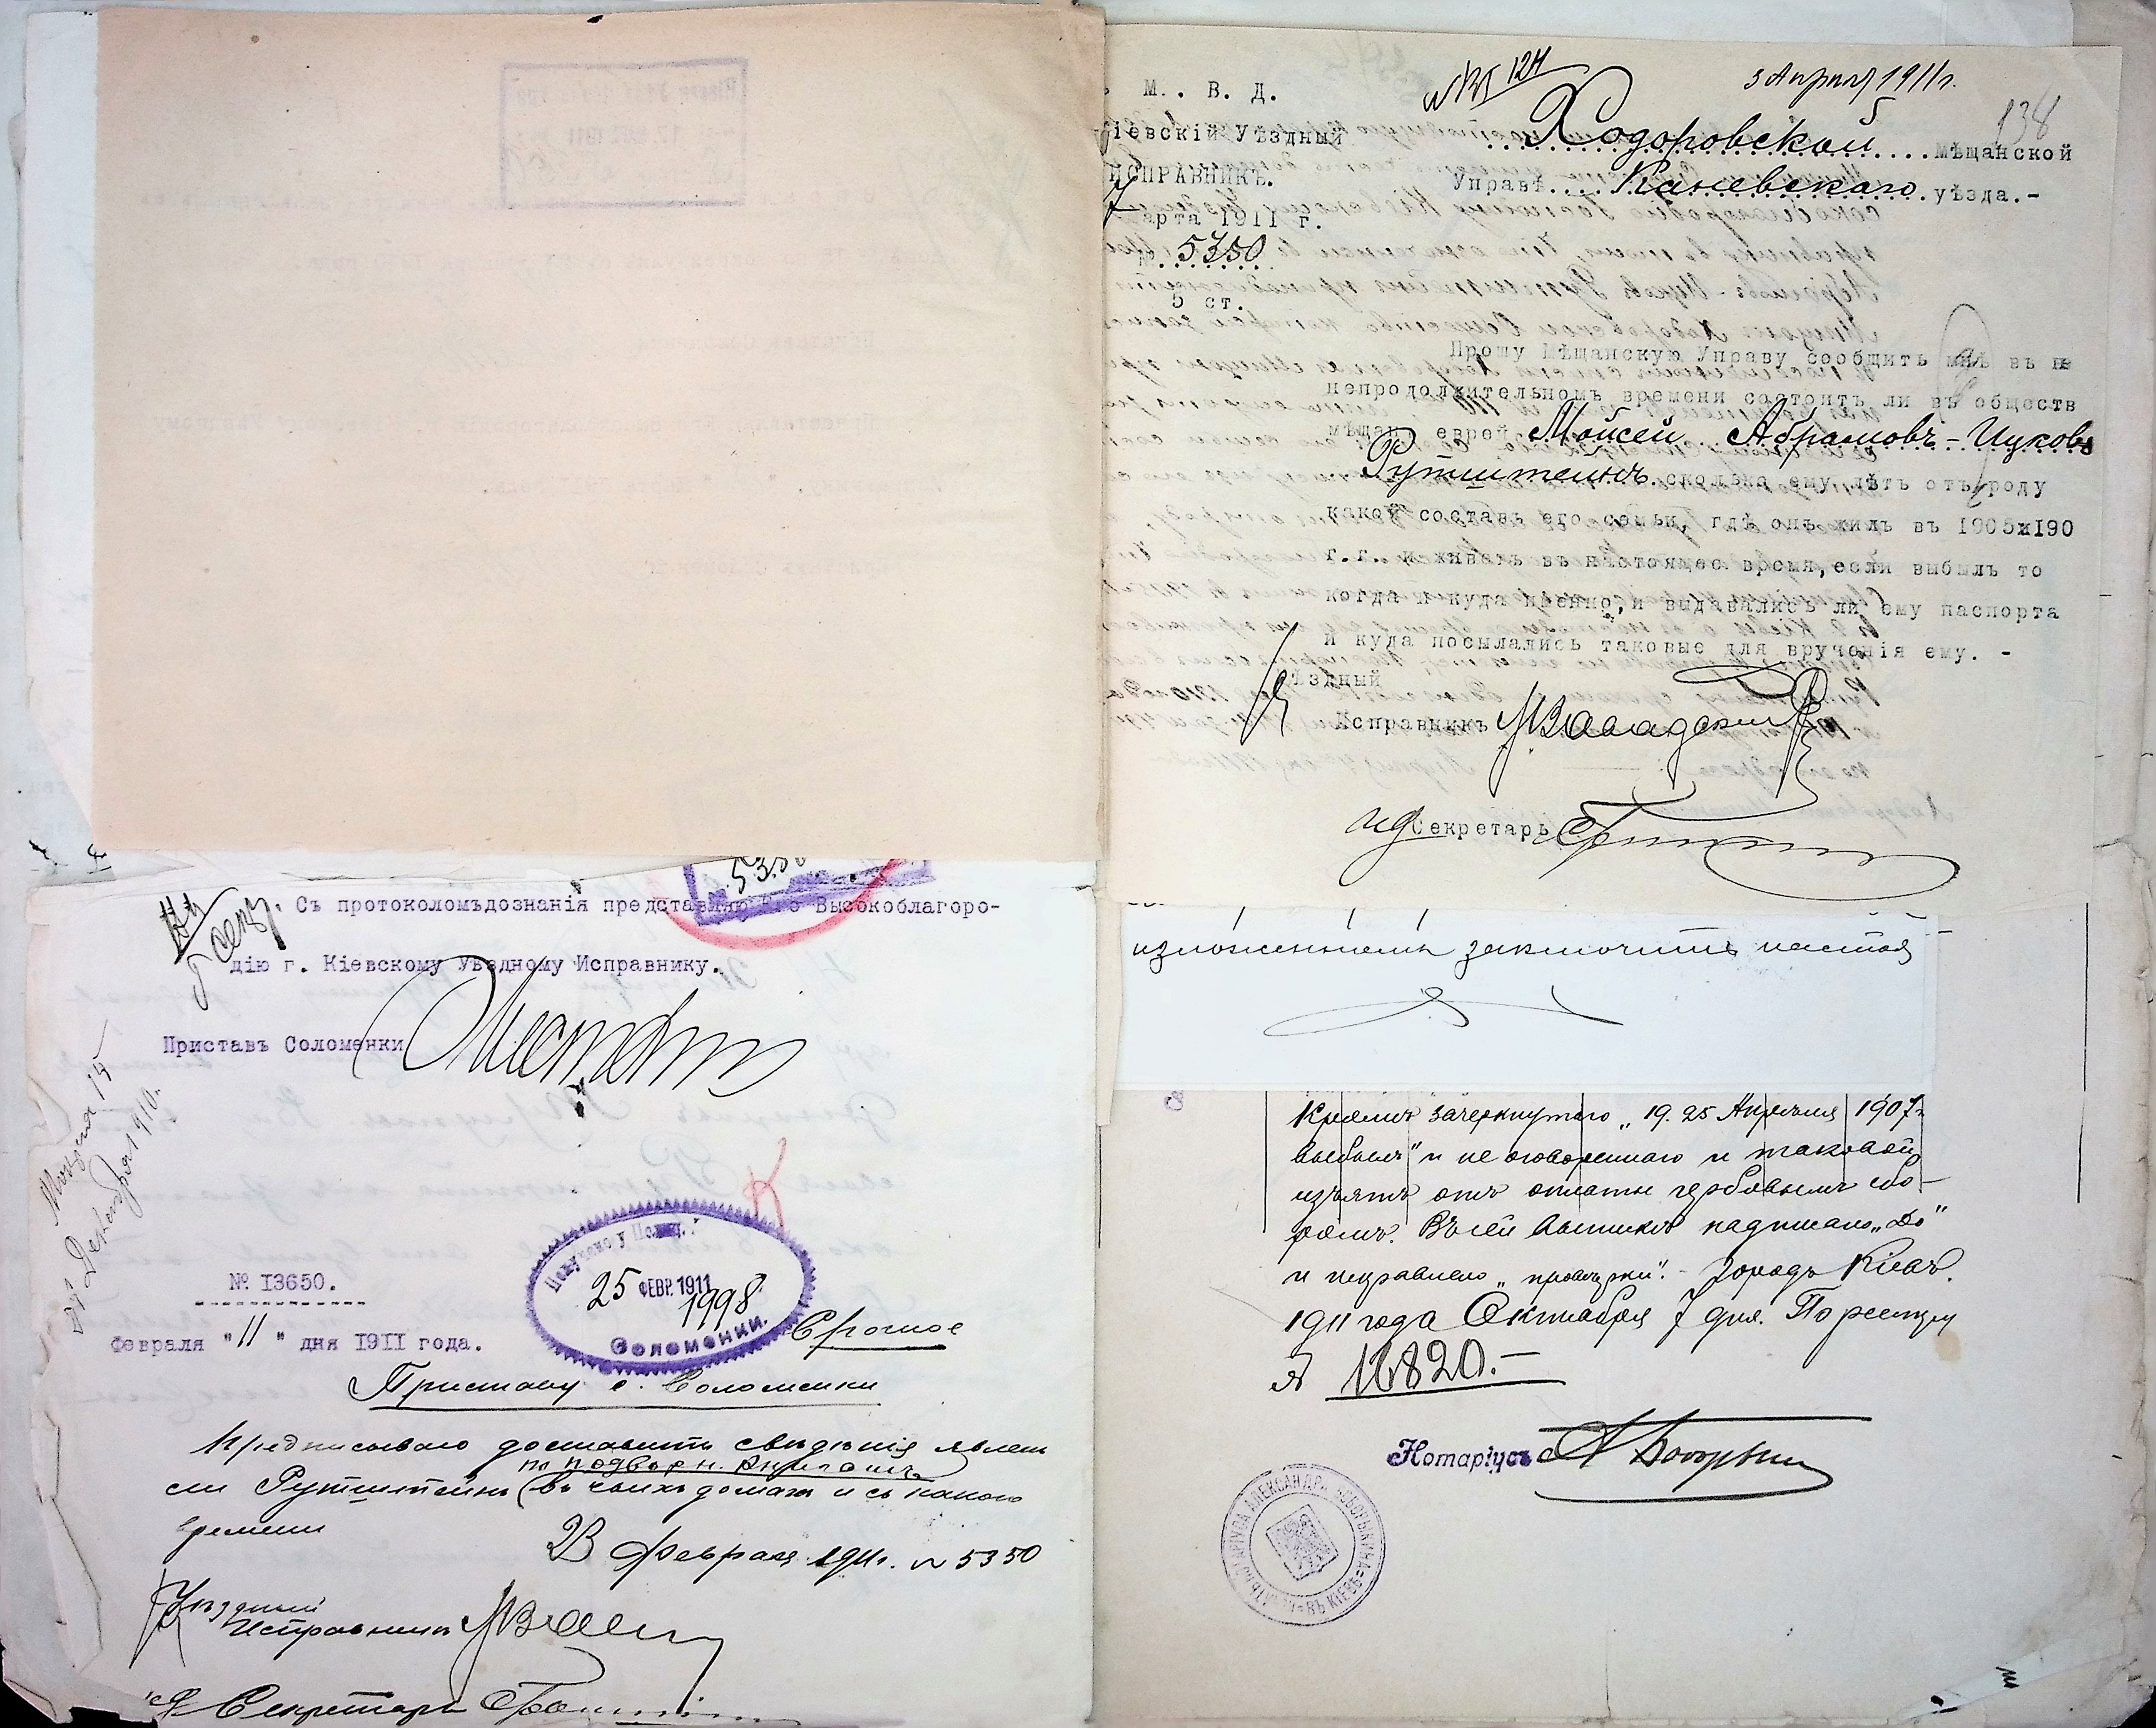 М. В. Д.
Кіевскій Уѣздный
ИСПРАВНИКЪ.
7 Марта 1911 г.
№ 5350
5 ст.
№ 124
3 Апреля 1911 г.
138
Ходоровской Мѣщанской
Управѣ Каневскаго уѣзда.-
Прошу Мѣщанскую Управу сообщить мнѣ въ
непродолжительномъ времени состоитъ ли въ обществ
мѣщан. еврей Мойсей Абрамовъ-Ицковъ
Рутштейнъ сколько ему лѣтъ отъ роду
какой составъ его семьи, гдѣ онъ жилъ въ 1905 и 190
г.г. и живетъ въ настоящее время, если выбылъ то
когда и куда именно, и выдавались ли ему паспорта
и куда посылались таковые для врученія ему. -
Уѣздный
Исправникъ
И д Секретарь
5350
Съ протоколомъ дознанія представляю Его Высокоблагоро-
дію г. Кіевскому Уѣздному Исправнику.
Приставъ Соломенки
Декабря 1910.
№ 13650.
Февраля "11" дня 1911 года.
25 ФЕВР. 1911
1998
Соломенки.
Срочное
Приставу с. Соломенки
Предписываю доставить свѣдѣнія явлен
по подворн. книгамъ
ли Рутштейнъ (въ чьихъ домахъ и съ какого
времени
23 февраля 1911г. № 5350
Уѣздный
Исправникъ
Секретарь
изложеннымъ заключить настоя
Кромѣ зачеркнутаго „19. 25 Апрѣля 1907г
выбылъ" и не оговореннаго и таковой
изъятъ отъ оплаты гербовымъ сбо-
ромъ. Въ сей выпискѣ надписано „до"
и исправлено „провѣрки". - Городъ Кіевъ.
1911 года Октября 7 дня. По реестру
№ 16820.-
Нотаріусъ
НОТАРІУСА АЛЕКСАНДРА БОБОРЫКИНА ВЪ КІЕВѢ